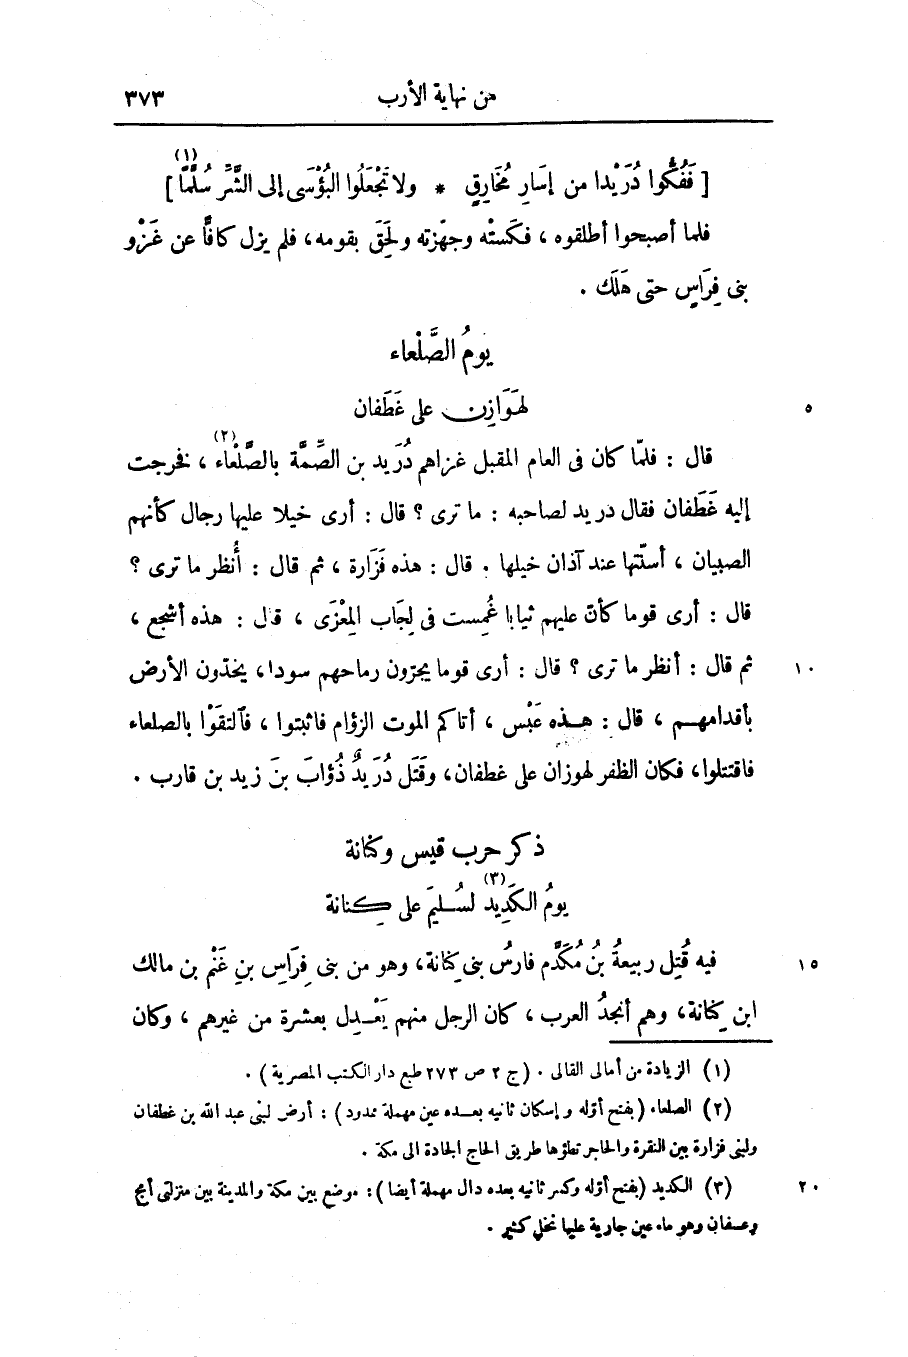 من نهاية الأرب ٣٧٣
[ فَفُكُّوا دُرَيْدا من إسَارِ مُخَارِقٍ * ولا تَجْعَلُوا البُؤْسَى إلى الشَّرِّ سُلَّمًا (١) ]
فلما أصبحوا أطلقوه ، فكَستْه وجهّزته ولَحِقَ بقومه، فلم يزل كافًّا عن غَزْو
بنى فِرَاسٍ حتى هَلَك .
يومُ الصَّلْعاء
٥ لهَوَازِن على غَطَفان
قال : فلمّا كان فى العام المقبل غزاهم دُرَيد بن الصِّمَّة بالصَّلْعاء (٢) ، فخرجت
إليه غَطَفان فقال دريد لصاحبه : ما ترى ؟ قال : أرى خيلا عليها رجال كأنهم
الصبيان ، أسنّتها عند آذان خيلها . قال : هذه فَزَارة ، ثم قال : أُنظر ما ترى ؟
قال : أرى قوما كأنّ عليهم ثيابا غُمِست فى لِجَاب المِعْزَى ، قال : هذه أشجع ،
١٠ ثم قال : أنظر ما ترى ؟ قال : أرى قوما يجرّون رماحهم سودا، يخدّون الأرض
بأقدامهم ، قال : هذه عَبْس ، أتاكم الموت الزؤام فاثبتوا ، فآلتقَوْا بالصلعاء
فاقتتلوا، فكان الظفر لهوزان على غطفان، وقَتَل دُرَيدٌ ذُؤابَ بنَ زيد بن قارب .
ذكر حرب قيس وكنانة
يومُ الكَدِيد (٣) لسُليمَ على كِنانة
١٥ فيه قُتِل ربيعةُ بنُ مُكَدَّم فارسُ بنى كِنانة، وهو من بنى فِرَاسِ بنِ غَنْم بن مالك
ابن كِنانة، وهم أنجدُ العرب ، كان الرجل منهم يَعْدِل بعشرة من غيرهم ، وكان
(١) الزيادة من أمالى القالى . (ج ٢ ص ٢٧٣ طبع دار الكتب المصرية) .
(٢) الصلعاء (بفتح أوّله وإسكان ثانيه بعده عين مهملة ممدود) : أرض لبنى عبد الله بن غطفان
ولبنى فزارة بين النقرة والحاجر تطؤها طريق الحاج الجادة الى مكة .
٢٠ (٣) الكديد (بفتح أوّله وكسر ثانيه بعده دال مهملة أيضا) : موضع بين مكة والمدينة بين منزلتى أمج
وعسفان وهو ماء عين جارية عليها نخل كثير .